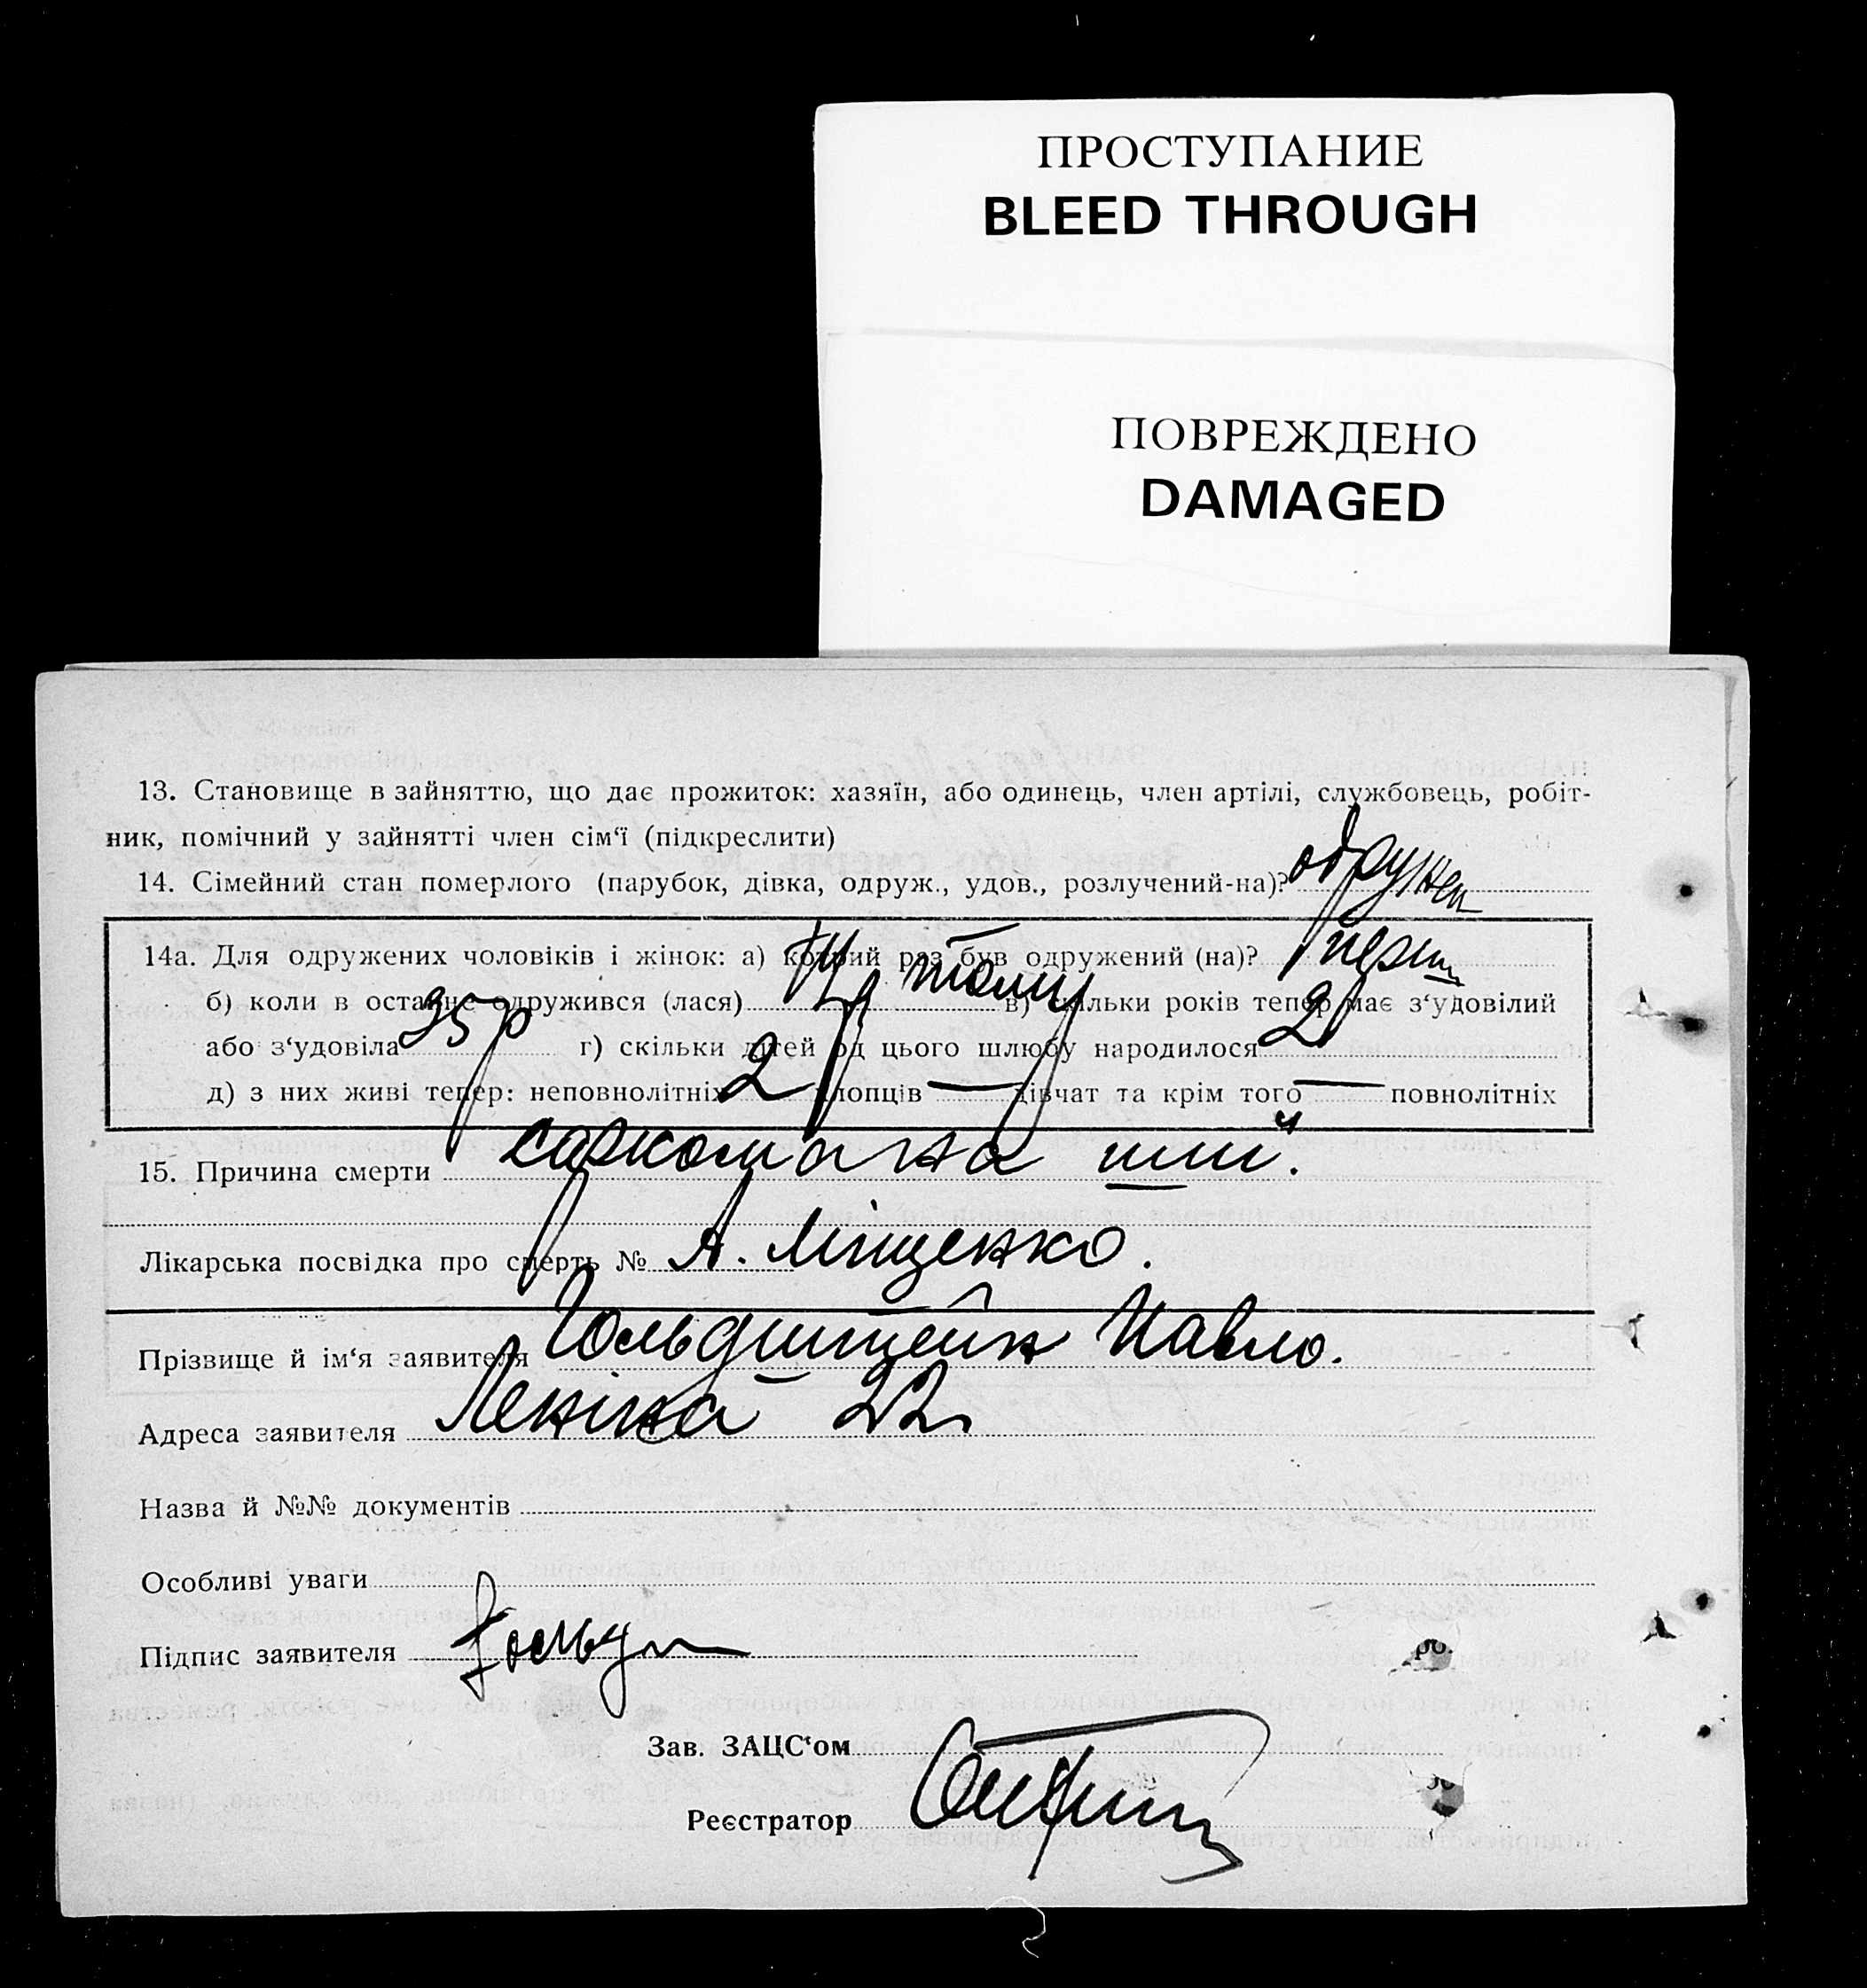 ПРОСТУПАНИЕ
BLEED THROUGH
ПОВРЕЖДЕНО
DAMAGED
13. Становище в зайняттю, що дає прожиток: хазяїн, або одинець, член артілі, службовець, робіт-
ник, помічний у зайнятті член сім‘ї (підкреслити)
14. Сімейний стан померлого (парубок, дівка, одруж., удов., розлучений-на)? одружен
14а. Для одружених чоловіків і жінок: а) котрий раз був одружений (на)?
б) коли в останнє одружився (лася) тому в) скільки років тепер має з‘удовілий
або з‘удовіла 35 р г) скільки дітей од цього шлюбу народилося 2
д) з них живі тепер: неповнолітніх 2 хлопців — дівчат та крім того — повнолітніх
15. Причина смерти саркома на шиї.
Лікарська посвідка про смерть № А. Міщенко.
Прізвище й ім‘я заявителя Гольдштейн Павло.
Адреса заявителя Леніна 22
Назва й №№ документів
Особливі уваги
Підпис заявителя
Зав. ЗАЦС‘ом
Реєстратор